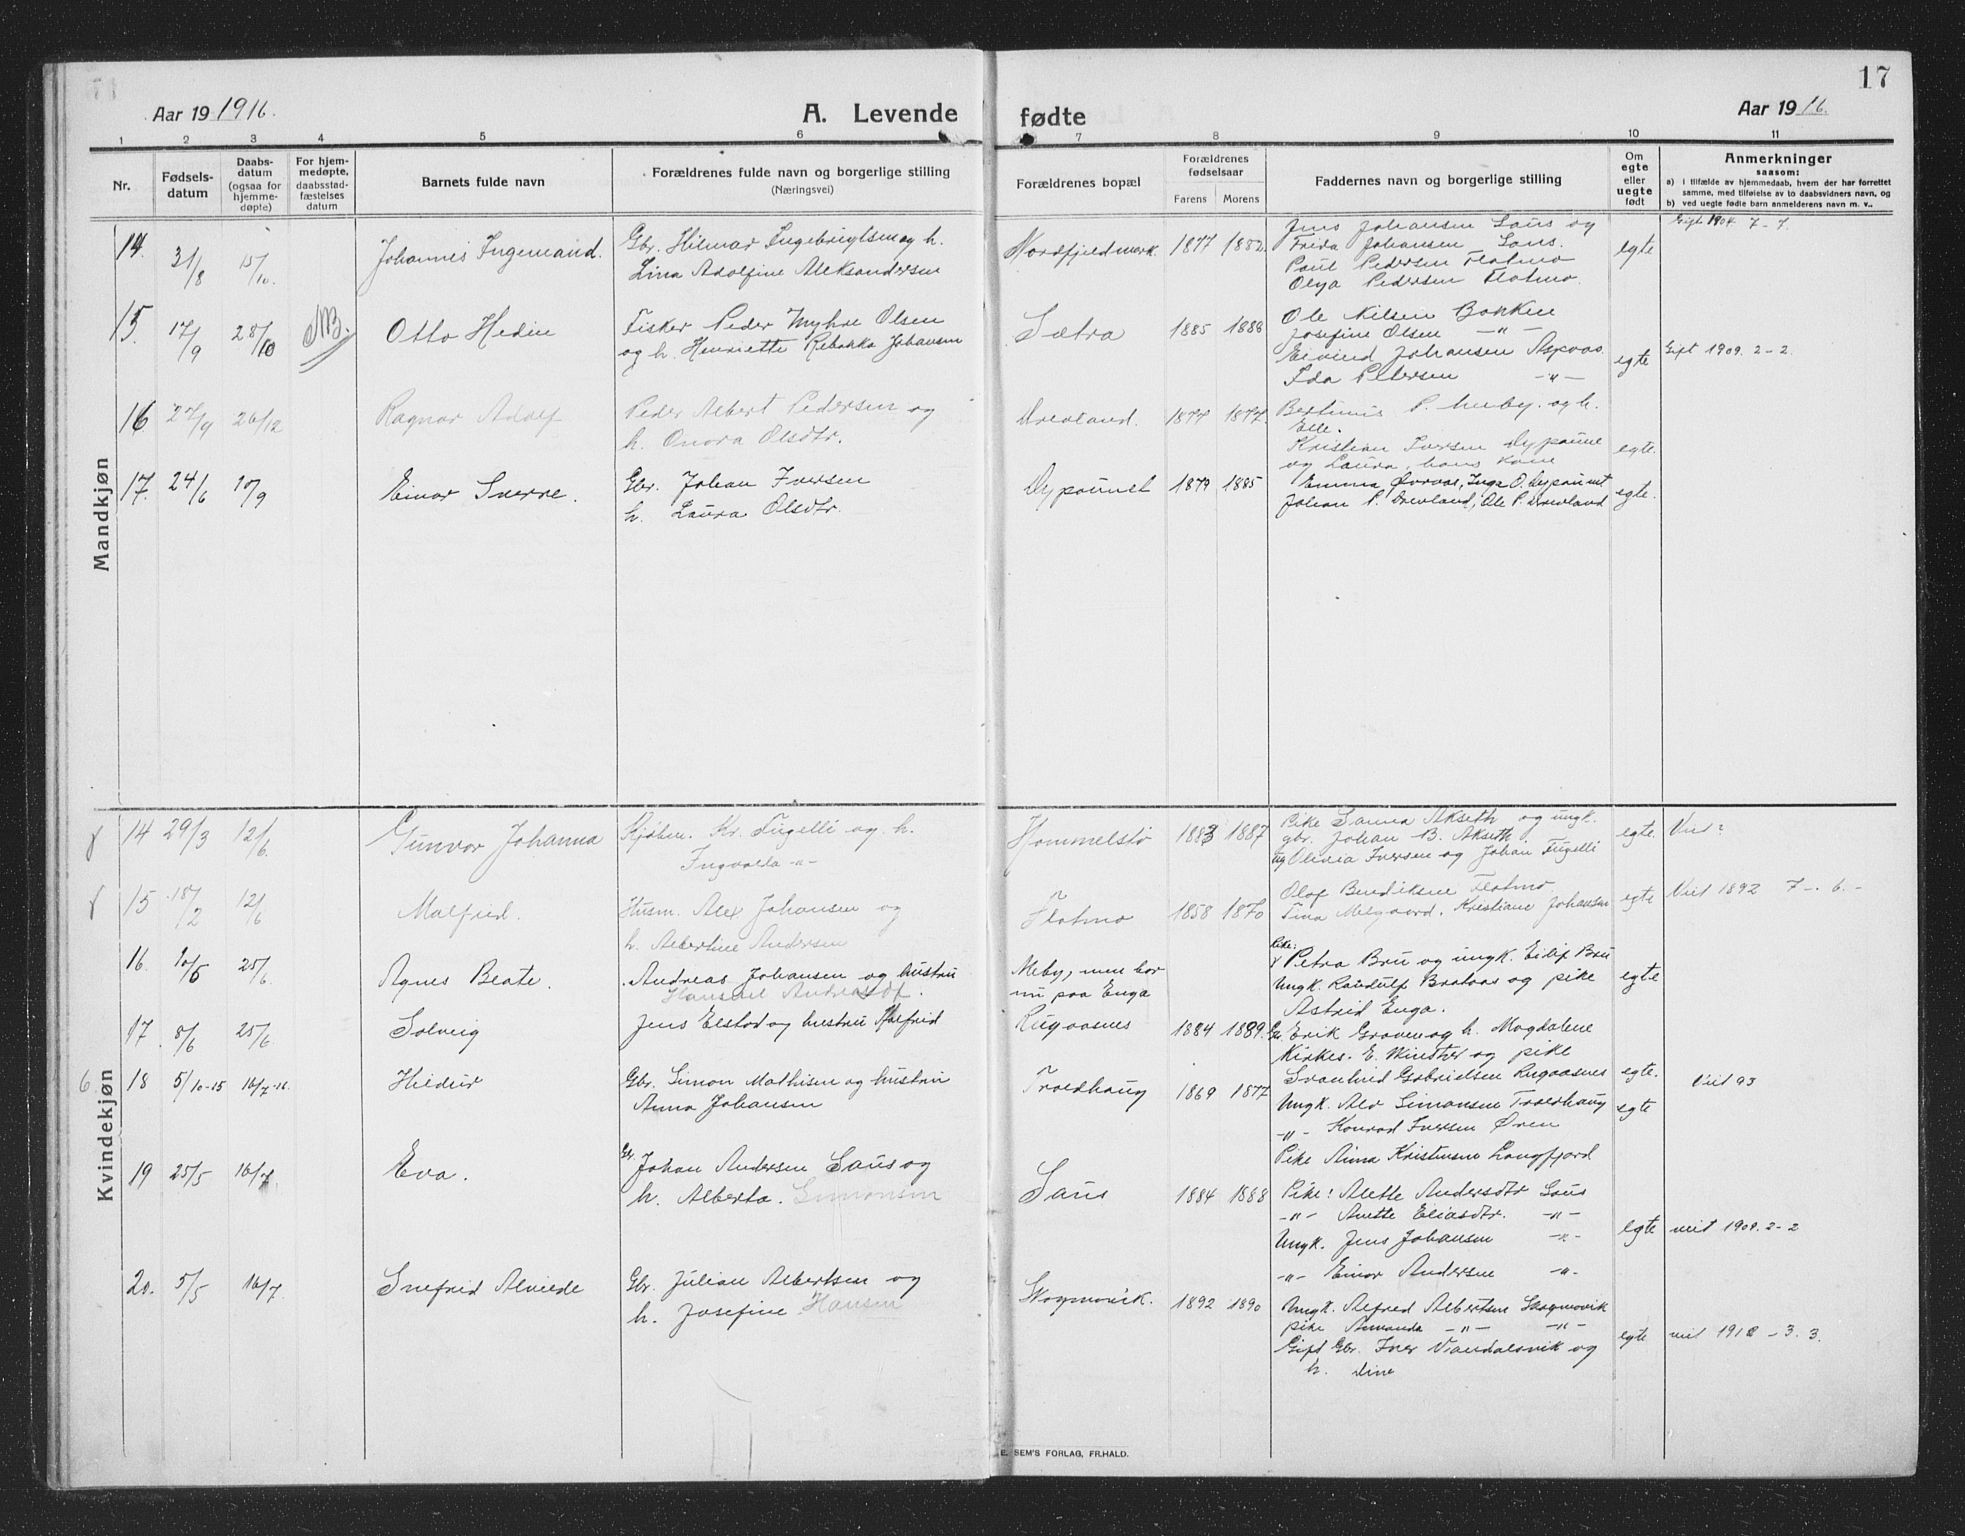 17
Aar 19 1916.
A. Levende
fødte
Aar 19 16.
1 2 3 4 5 6 7 8 9 10 11
Nr.
Fødsels-
datum
Daabs-
datum
(ogsaa for
hjemme-
døpte)
For hjem-
medøpte,
daabsstad-
fæstelses
datum
Barnets fulde navn
Forældrenes fulde navn og borgerlige stilling
(Næringsvei)
Forældrenes bopæl
Forældrenes
fødselsaar
Farens Morens
Faddernes navn og borgerlige stilling
Om
egte
eller
uegte
født
Anmerkninger
saasom:
a) i tilfælde av hjemmedaab, hvem der har forrettet
samme, med tilføielse av to daabsvidners navn, og
b) ved uegte fødte barn anmelderens navn m. v..
Mandkjøn
14. 31/8 15/10. Johannes Ingemand. Gbr. Hilmar Ingebrigtsen og h.
Lina Adolfine Aleksandersen
Nordfjeldmerk. 1877 1882.
Jens Johansen Saus og
Frida Johansen Saus.
Paul Pedersen Flatmo
Olga Pedersen Flatmo.
egte
Gift 1904. 7-7.
15. 17/9 28/10 NB. Otto Hedin Fisker Peder Myhre Olsen
og h. Henriette Rebekka Johansen
Sætra 1885 1888
Ole Nilsen Bakken
Josefine Olsen -"-
Eivind Johansen Aspaas.
Ida Petersen -"-
egte
Gift 1909. 2-2.
16. 27/9 26/12 Ragnar Adolf Peder Albert Pedersen og
h. Onora Olsdtr.
Drevland. 1877 1877.
P. og h.
Elle.
Kristian Iversen Dypaune
og Laura, hans kone
egte.
17. 24/6 10/9 Einar Sverre. Gbr. Johan Iversen
h. Laura Olsdtr.
Dypaunet 1879 1885
Emma Øvraas, Inga O. Dypaunet
Johan P. Drevland, Ole P. Drevland
egte.
Kvindekjøn
14 29/3 12/6. Gunvor Johanna Kjøbm. Kr. Fugelli og h.
Ingvalla -"-
Hommelstø 1883 1887
Pike Sanna Akseth og ungk.
gbr. Johan B. Akseth
og Olivia Iversen og Johan Fugelli
egte.
Viet?
15 18/2 12/6 Malfrid. Husm. Alex Johansen og
h. Albertine Andersen
Flatmo 1858 1870
Olaf Benediksen Flatmo
Tina Melgaard. Kristiane Johansen
egte
Viet 1892 7-.6.-
16. 10/5 25/6. Agnes Beate. Andreas Johansen og hustru
Andreasdt.
Meby, men bor
nu paa Enga
Pike:
Petra Bru og ungk. Eilif Bru
Ungk. Randulf Brataas og pike
Astrid Enga.
egte
17 8/6 25/6 Solveig Jens Elstad og hustru Halfrid
Rugaasnes 1884 1889.
Gbr. Erik Graven og h. Magdalene
Kirkes. E. Winther og pike
Svanhild Gabrielsen Rugaasnes
egte.
6 18 5/10-15 16/7-16. Hildur Gbr. Simon Mathisen og hustru
Anna Johansen
Troldhaug 1869 1877
Ungk. Alv Simonsen Troldhaug
-"- Konrad Iversen Øren
Pike Anna Kristensen Langfjord
egte
Viet 93
19 25/5 16/7 Eva. Gbr. Johan Andersen Saus og
h. Alberta. Simonsen
Saus 1884 1888
Pike: Alette Andersdtr Saus
-"- Anette Eliasdtr. -"-
Ungk. Jens Johansen -"-
-"- Einar Andersen -"-
egte
viet 1909. 2-2
20. 5/5 16/7. Snefrid Alvilde Gbr. Julian Albertsen og
h. Josefine Hansen
Skogmovik. 1892 1890
Ungk. Alfred Albertsen Skogmovik
pike Amanda -"- -"-
Gift Gbr. Iver Vandalsvik og
h. Line
egte
viet 1912 - 3. 3.
E. SEM'S FORLAG, FR.HALD.